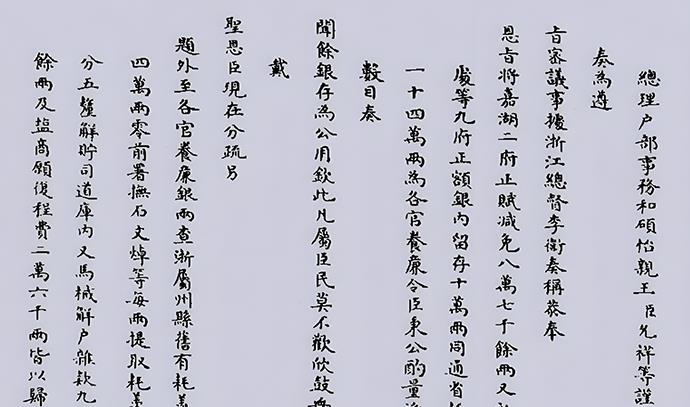 總理户部事務和碩怡親王臣允祥等謹
奏為遵
旨審議事據浙江總督李衛奏稱恭奉
恩旨將嘉湖二府正賦減免八萬七千餘兩又
處等九府正額銀內留存十萬兩同通省
一十四萬兩為各官養廉令臣秉公酌量
數目奏
聞餘銀存為公用欽此凡屬臣民莫不歡欣鼓舞
戴
聖恩臣現在分疏另
題外至各官養廉銀兩查浙屬州縣舊有耗羨
四萬兩零前署撫石文焯等每兩提取耗羨
分五釐解貯司道庫內又馬械解户雜款九
餘兩及塩商願復程費二萬六千兩皆以歸